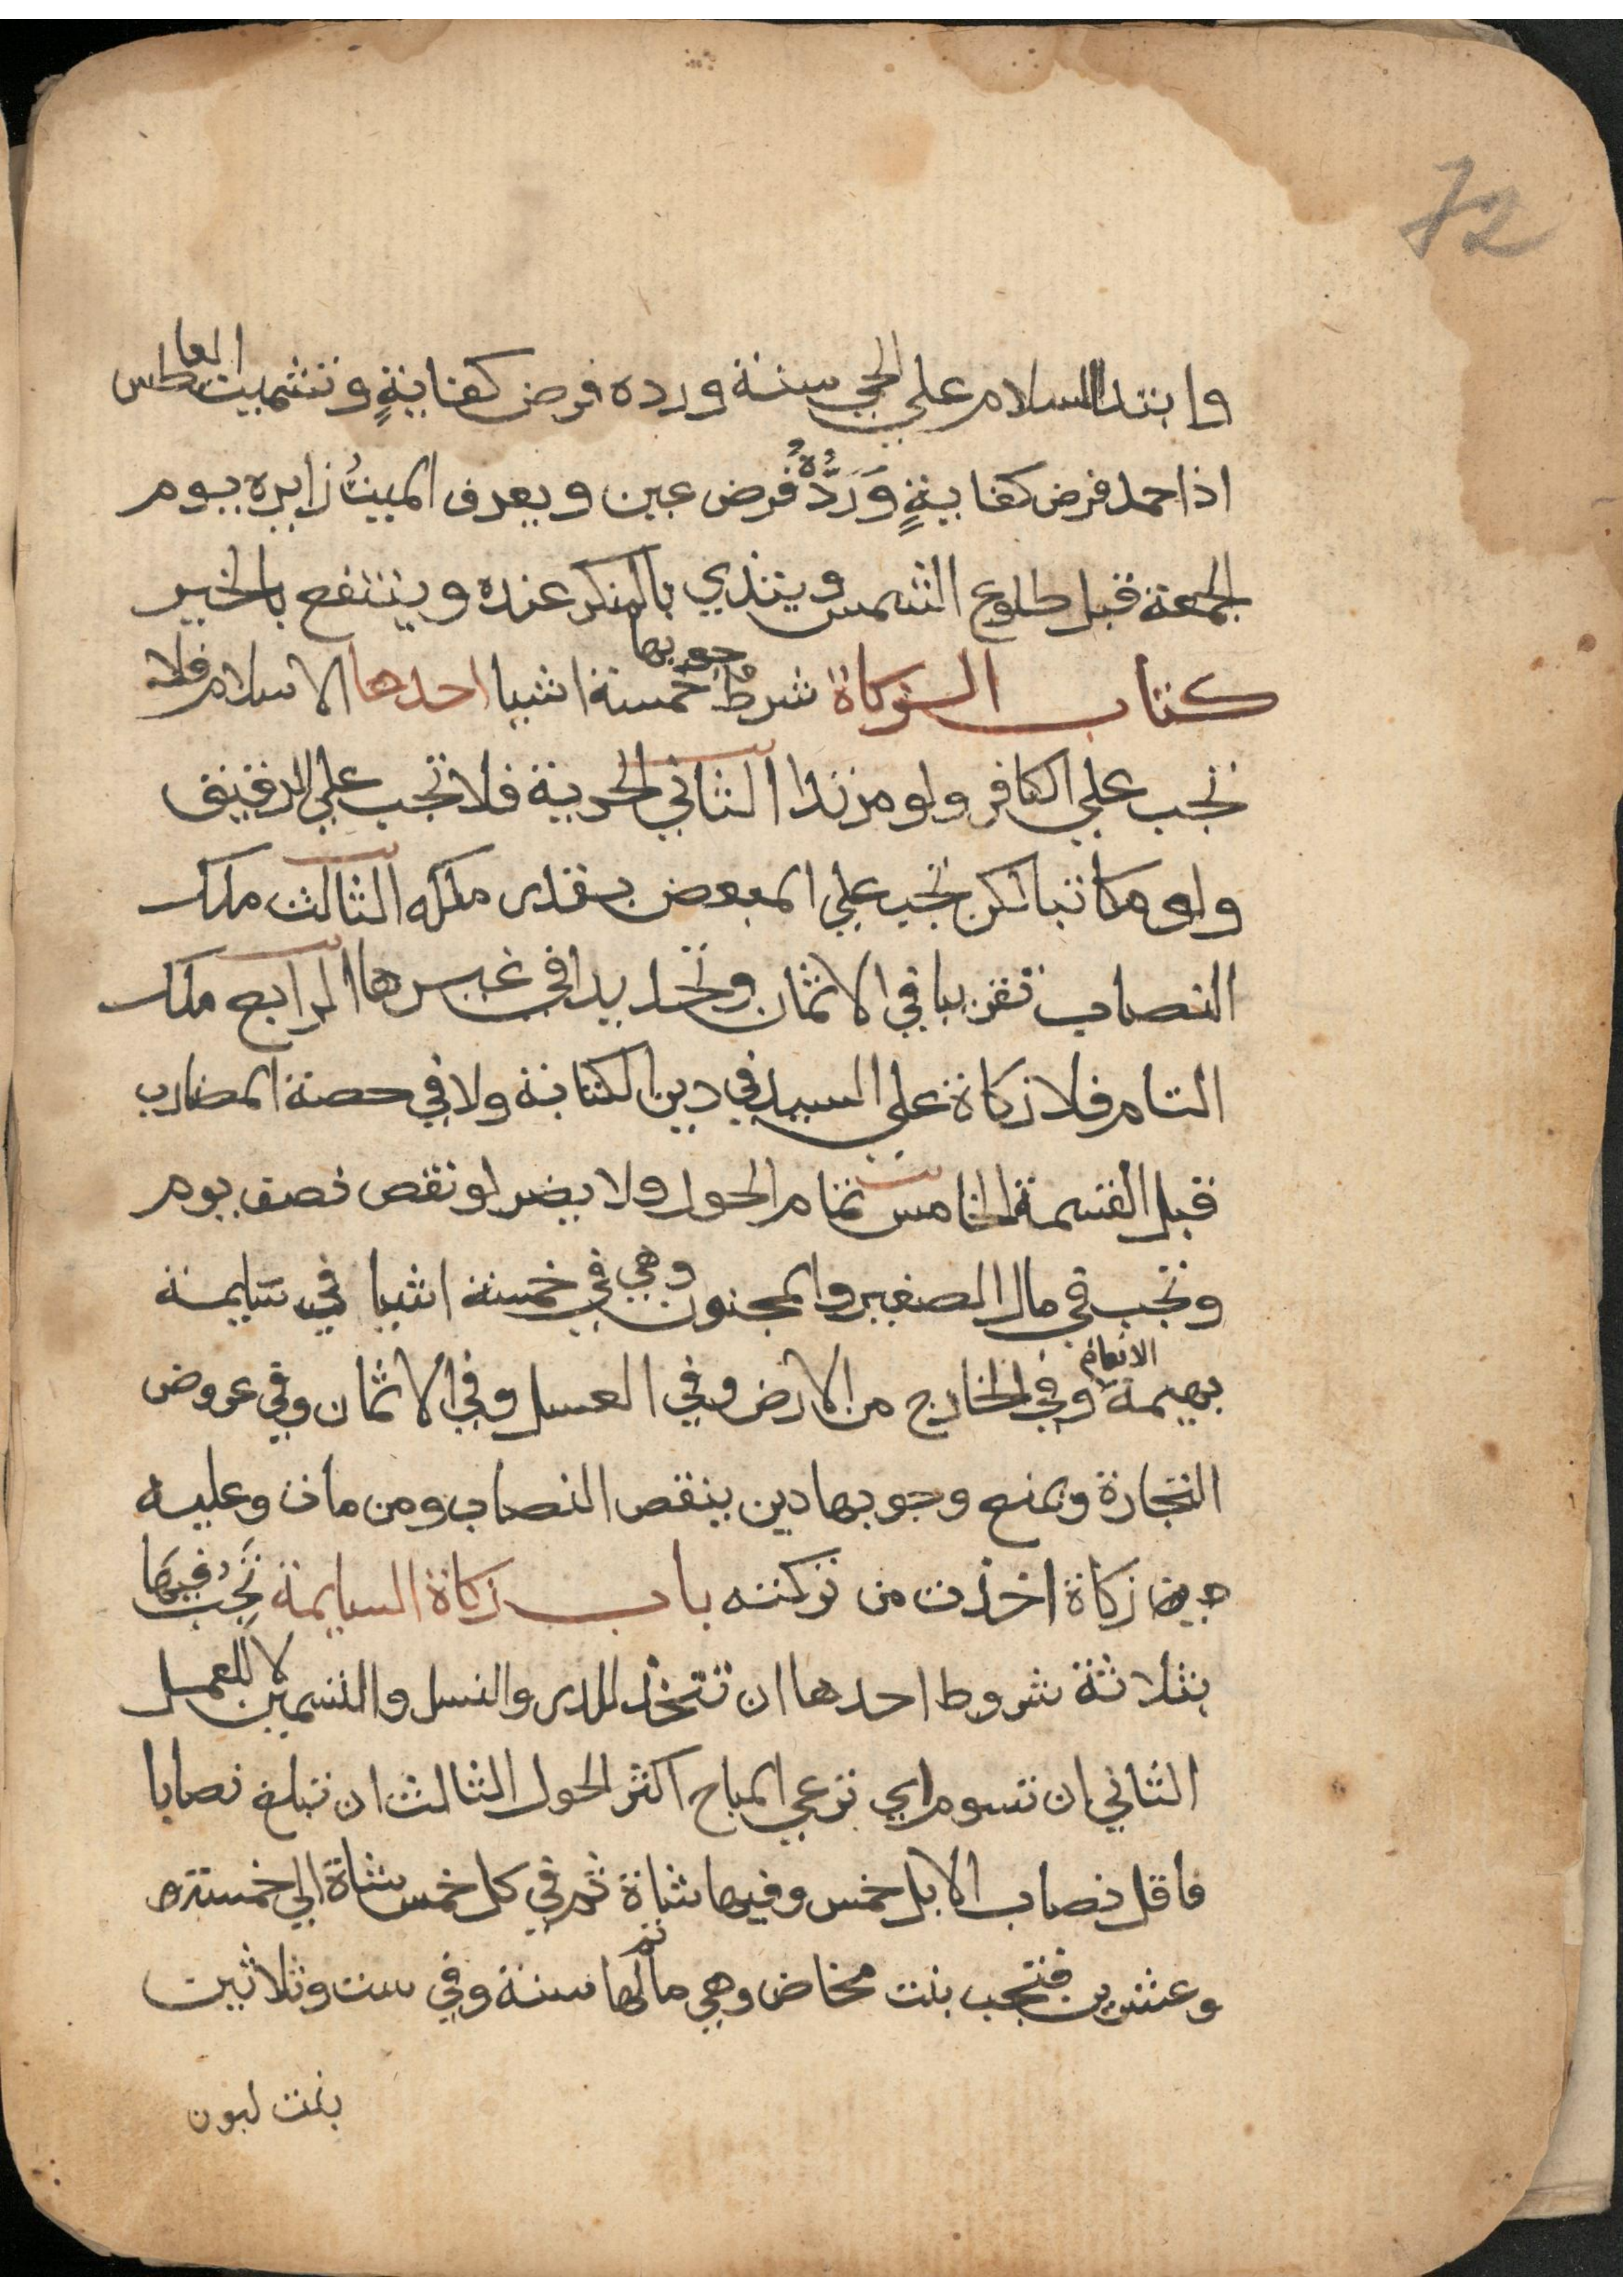 72
وابتدا السلام علي الحي سنة ورده فرض كفاية وتشميت العاطس
اذا حمد فرض كفاية وَرَدُّهُ فرض عين ويعرف الميتُ زايره يوم
الجمعة قبل طلوع الشمس ويتاذي بالمنكر عنده وينتفع بالخير
كتاب الزكاة شرط وجوبها خمسة اشيا احدها الاسلام فلا
تجب علي الكافر ولو مرتدا الثاني الحرية فلا تجب علي الرقيق
ولو مكاتبا لكن تجب علي المبعض بقدر ملكه الثالث ملك
النصاب تقريبا في الاثمان وتحديدا في غيرها الرابع ملك
التام فلا زكاة علي السيد في دين الكتابة ولا في حصة المضارب
قبل القسمة الخامس تمام الحول ولا يضر لو نقص نصف يوم
وتجب في مال الصغير والمجنون وهي في خمسة اشيا في سايمة
بهيمة الانعام وفي الخارج من الارض وفي العسل وفي الاثمان وفي عروض
التجارة ويمنع وجوبها دين ينقص النصاب ومن مات وعليه
زكاة اخذت من تركته باب زكاة السايمة تَجِبُ فيها
بثلاثة شروط احدها ان تتخذ للدر والنسل والتسمين لا للعمل
الثاني ان تسوم اي ترعي المباح اكثر الحول الثالث ان تبلغ نصابا
فاقل نصاب الابل خمس وفيها شاة ثم في كل خمس شاة الي خمسة
وعشرين فتجب بنت مخاض وهي ما تم لها سنة وفي ست وثلاثين
بنت لبون